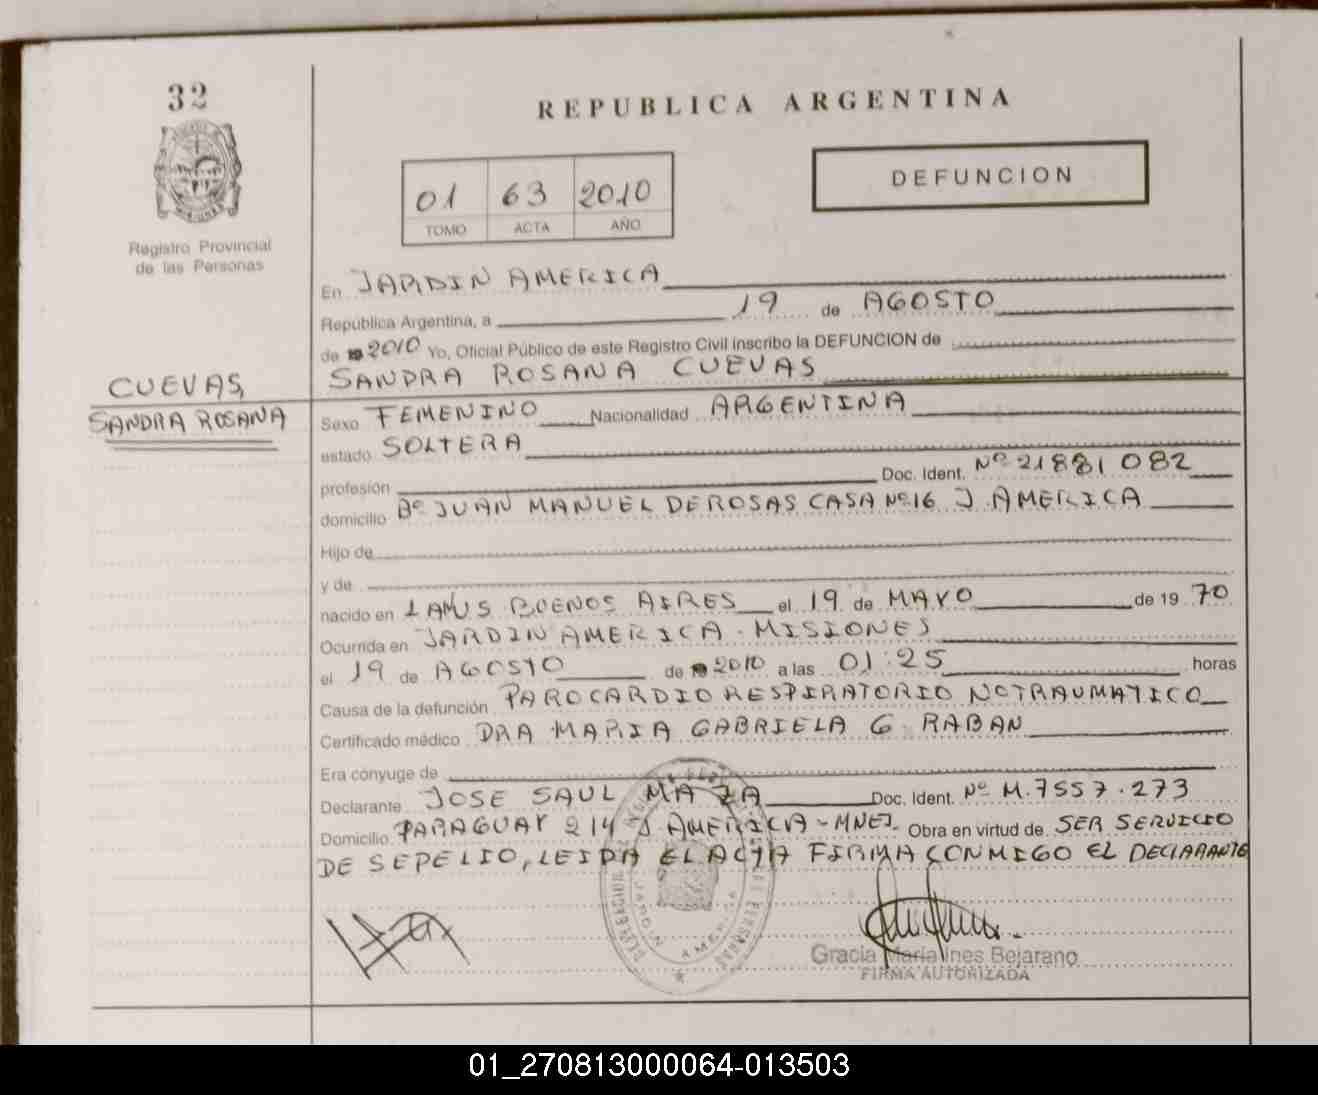 32
REPUBLICA ARGENTINA
DEFUNCION
01 63 2010
TOMO ACTA AÑO
Registro Provincial
de las Personas
En JARDIN AMERICA
República Argentina, a 19 de AGOSTO
de 19 2010 Yo, Oficial Público de este Registro Civil inscribo la DEFUNCION de
SANDRA ROSANA CUEVAS
CUEVAS,
SANDRA ROSANA
Sexo FEMENINO Nacionalidad ARGENTINA
estado SOLTERA
profesión Doc. Ident. Nº 21881082
domicilio Bº JUAN MANUEL DE ROSAS CASA Nº 16 J. AMERICA
Hijo de
y de
nacido en LANUS BUENOS AIRES el 19 de MAYO de 19 70
Ocurrida en JARDIN AMERICA - MISIONES
el 19 de AGOSTO de 19 2010 a las 01:25 horas
Causa de la defunción PAROCARDIO RESPIRATORIO NO TRAUMATICO
Certificado médico DRA MARIA GABRIELA G. RABAN
Era cónyuge de
Declarante JOSE SAUL MAZA Doc. Ident. Nº M.7557.273
Domicilio PARAGUAY 214 J. AMERICA - MNES. Obra en virtud de SER SERVICIO
DE SEPELIO, LEIDA EL ACTA FIRMA CONMIGO EL DECLARANTE
Gracia Maria Ines Bejarano
FIRMA AUTORIZADA
01_270813000064-013503